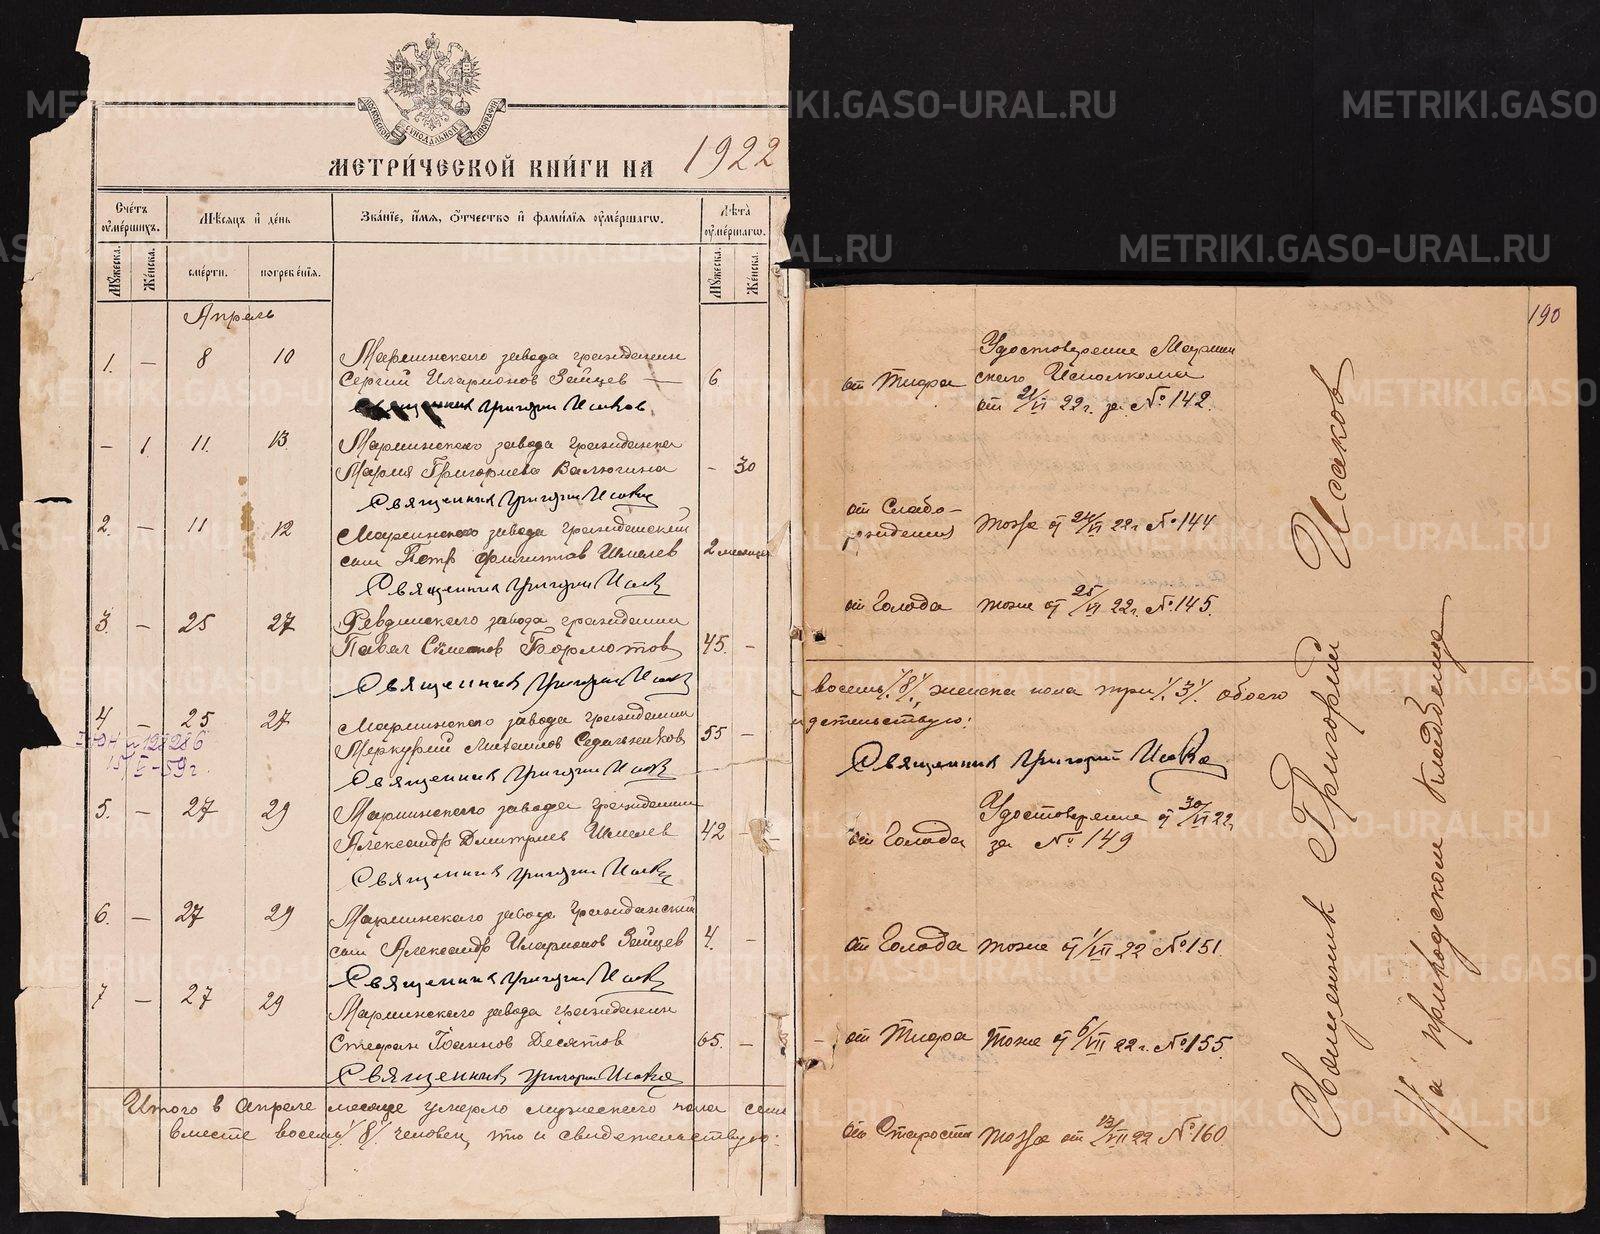 МОСКОВСКОЙ СѴНОДАЛЬНОЙ ТИПОГРАФІИ
МЕТРИ́ЧЕСКОЙ КНИ́ГИ НА 1922
Сче́тъ ᲂу҆ме́ршихъ.
Мѣ́сяцъ и де́нь
Зва́нїе, и҆́мѧ, Ѻ҆́тчество и фамилїѧ ᲂу҆ме́ршагѡ.
Лѣ́та ᲂу҆ме́ршагѡ.
Мꙋ́жеска.
Же́нска.
сме́рти.
погребе́нїѧ.
Мꙋ́жеска.
Же́нска.
Апрель
1. – 8 10 Мариинского завода гражданин
Сергий Иларионов Зайцев — 6
Священник Григорий Исаков
– 1 11. 13. Мариинского завода гражданка
Мария Григориева Валюгина – 30
Священник Григорий Исаков
2. – 11 12 Мариинского завода гражданский
сын Петр Шмелев 2 месяца
Священник Григорий Исаков
3. – 25 27 Ревдинского завода гражданин
Павел Симеонов Бормотов 45. –
Священник Григорий Исаков
4 – 25 27 Мариинского завода гражданин
Меркурий Михаилов Седельников 55 –
128286
15/V–59г.
Священник Григорий Исаков
5. – 27 29 Мариинского завода гражданин
Александр Дмитриев Шмелев 42 –
Священник Григорий Исаков
6. – 27 29 Мариинского завода гражданский
сын Александр Иларионов Зайцев 4. –
Священник Григорий Исаков
7 – 27 29 Мариинского завода гражданин
Стефан Иоаннов Десятов 65. –
Священник Григорий Исаков
Итого в Апреле месяце умерло мужеского пола семь
вместе восемь /8/ человек, то и свидетельствую:
190
Удостоверение Мариин
от Тифа ского Исполкома
от 21/VI 22г. за № 142.
от Слабо-
рождения тоже от 24/VI 22г №144
от Голода тоже от 25/VI 22г. №145.
восемь /8/, женска пола три /3/ обоего
идетельствую:
Священник Григорий Исаков
Удостоверение от 30/VI 22,
от Голода за № 149
от Голода тоже от 1/VII 22 №151.
от Тифа тоже от 6/VII 22г. №155.
от Старости тоже от 13/VII 22 №160
Священник Григорий Исаков
На приходском кладбище
METRIKI.GASO-URAL.RU